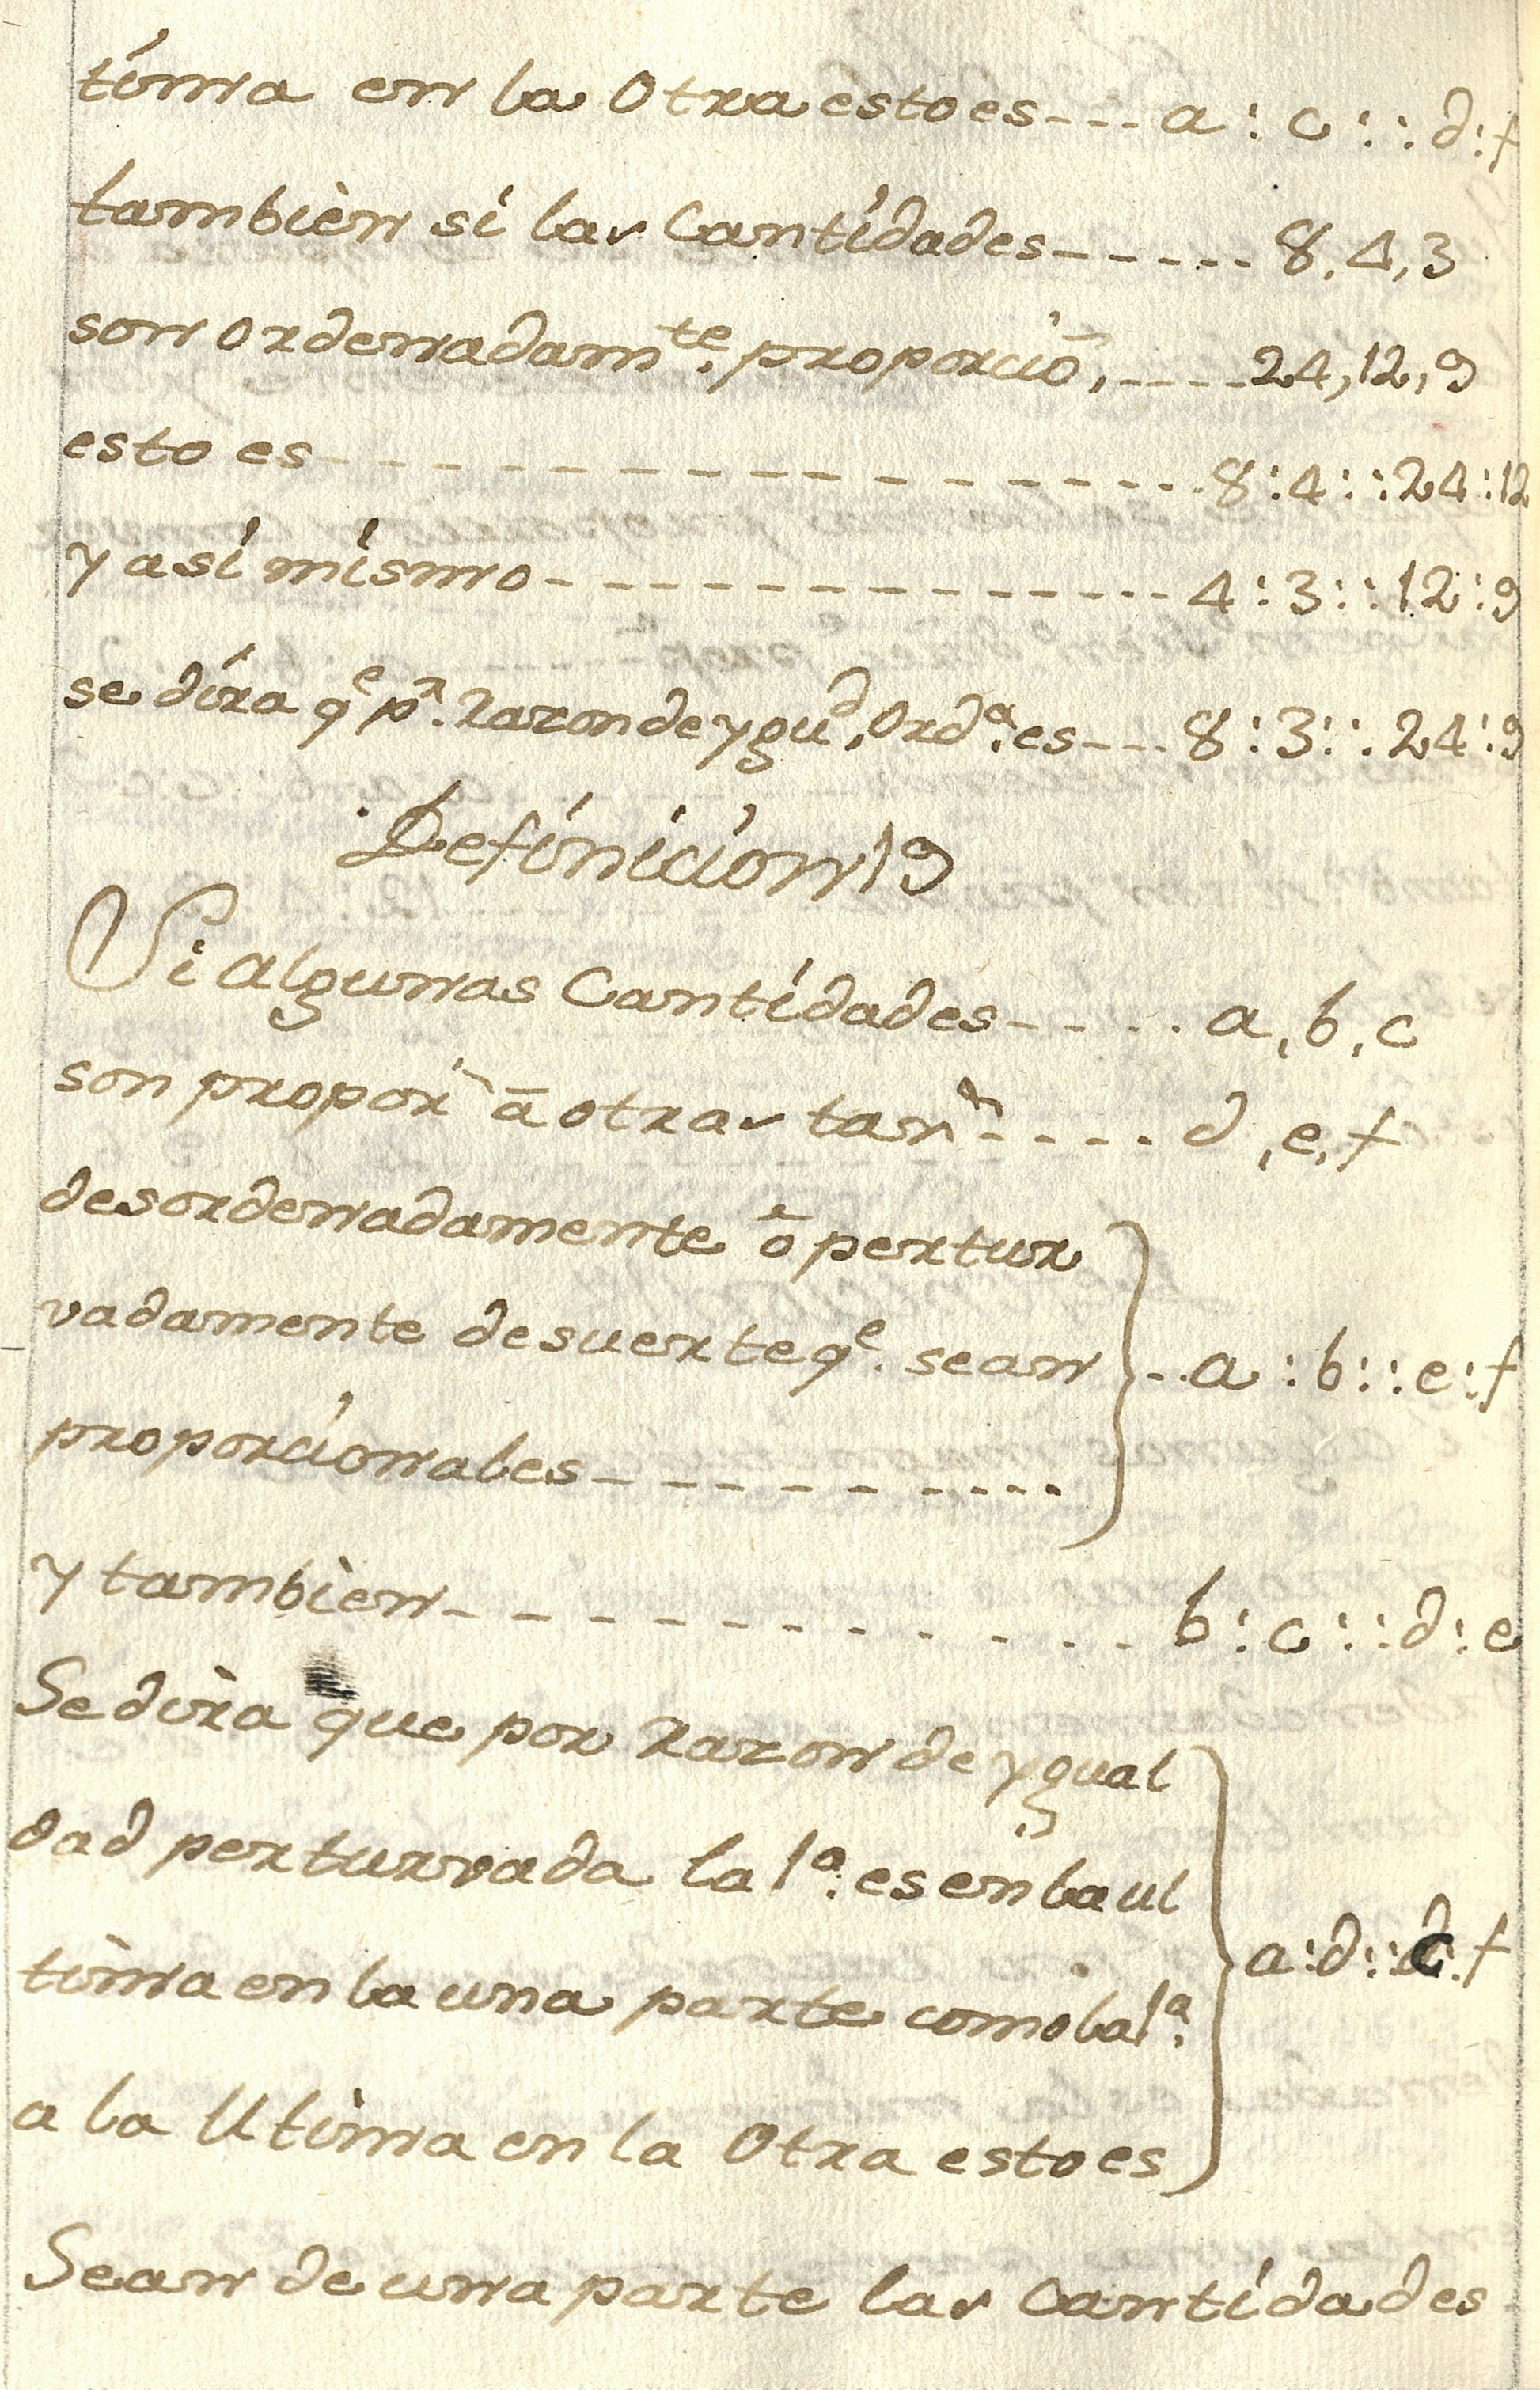 tima en la Otra esto es---- a : c : : d : f
tambièn si las Cantidades------ 8, 4, 3
son Ordenadam.te proporciō, ----- 24, 12, 9
esto es - - - - - - - - - - - - - - 8 : 4 : : 24 : 12
y asi mismo - - - - - - - - - - - - 4 : 3 : : 12 : 9
se dira q.e p.r Razon de ygu.d, Ord.a es ---- 8 : 3 : : 24 : 9
Definicion 19
Si algunas Cantidades - - - - - a, b, c
son propor.s ā otras tan.s - - - - - d, e, f
desordenadamente ō pertur
vadamente desuerte q.e sean } -- a : b : : e : f
proporcionales - - - - - - - - - -
y tambièn - - - - - - - - - - - - b : c : : d : e
Se dirà que por Razon de ygual
dad perturvada la 1.a es en la ul
tima en la una parte como la 1.a } a : d : : c : f
a la Ultima en la Otra esto es
Sean de una parte las Cantidades